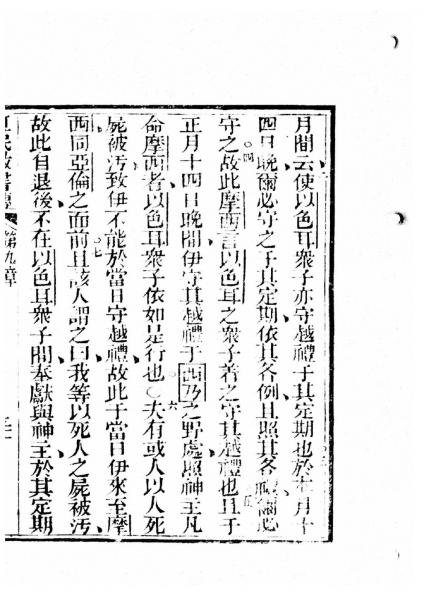 月間云使以色耳衆子亦守越禮于其定期也於本月十
四日晚爾必守之于其定期依其各例且照其各禮爾必
守之故此摩西言以色耳之衆子著之守其越禮也且于
正月十四日晚間伊守其越禮于西乃之野處照神主凡
命摩西者以色耳衆子依如是行也○夫有或人以人死
屍被汚致伊不能於當日守越禮故此于當日伊來至摩
西同亞倫之面前且該人謂之曰我等以死人之屍被汚
故此自退後不在以色耳衆子間奉獻與神主於其定期
第九章